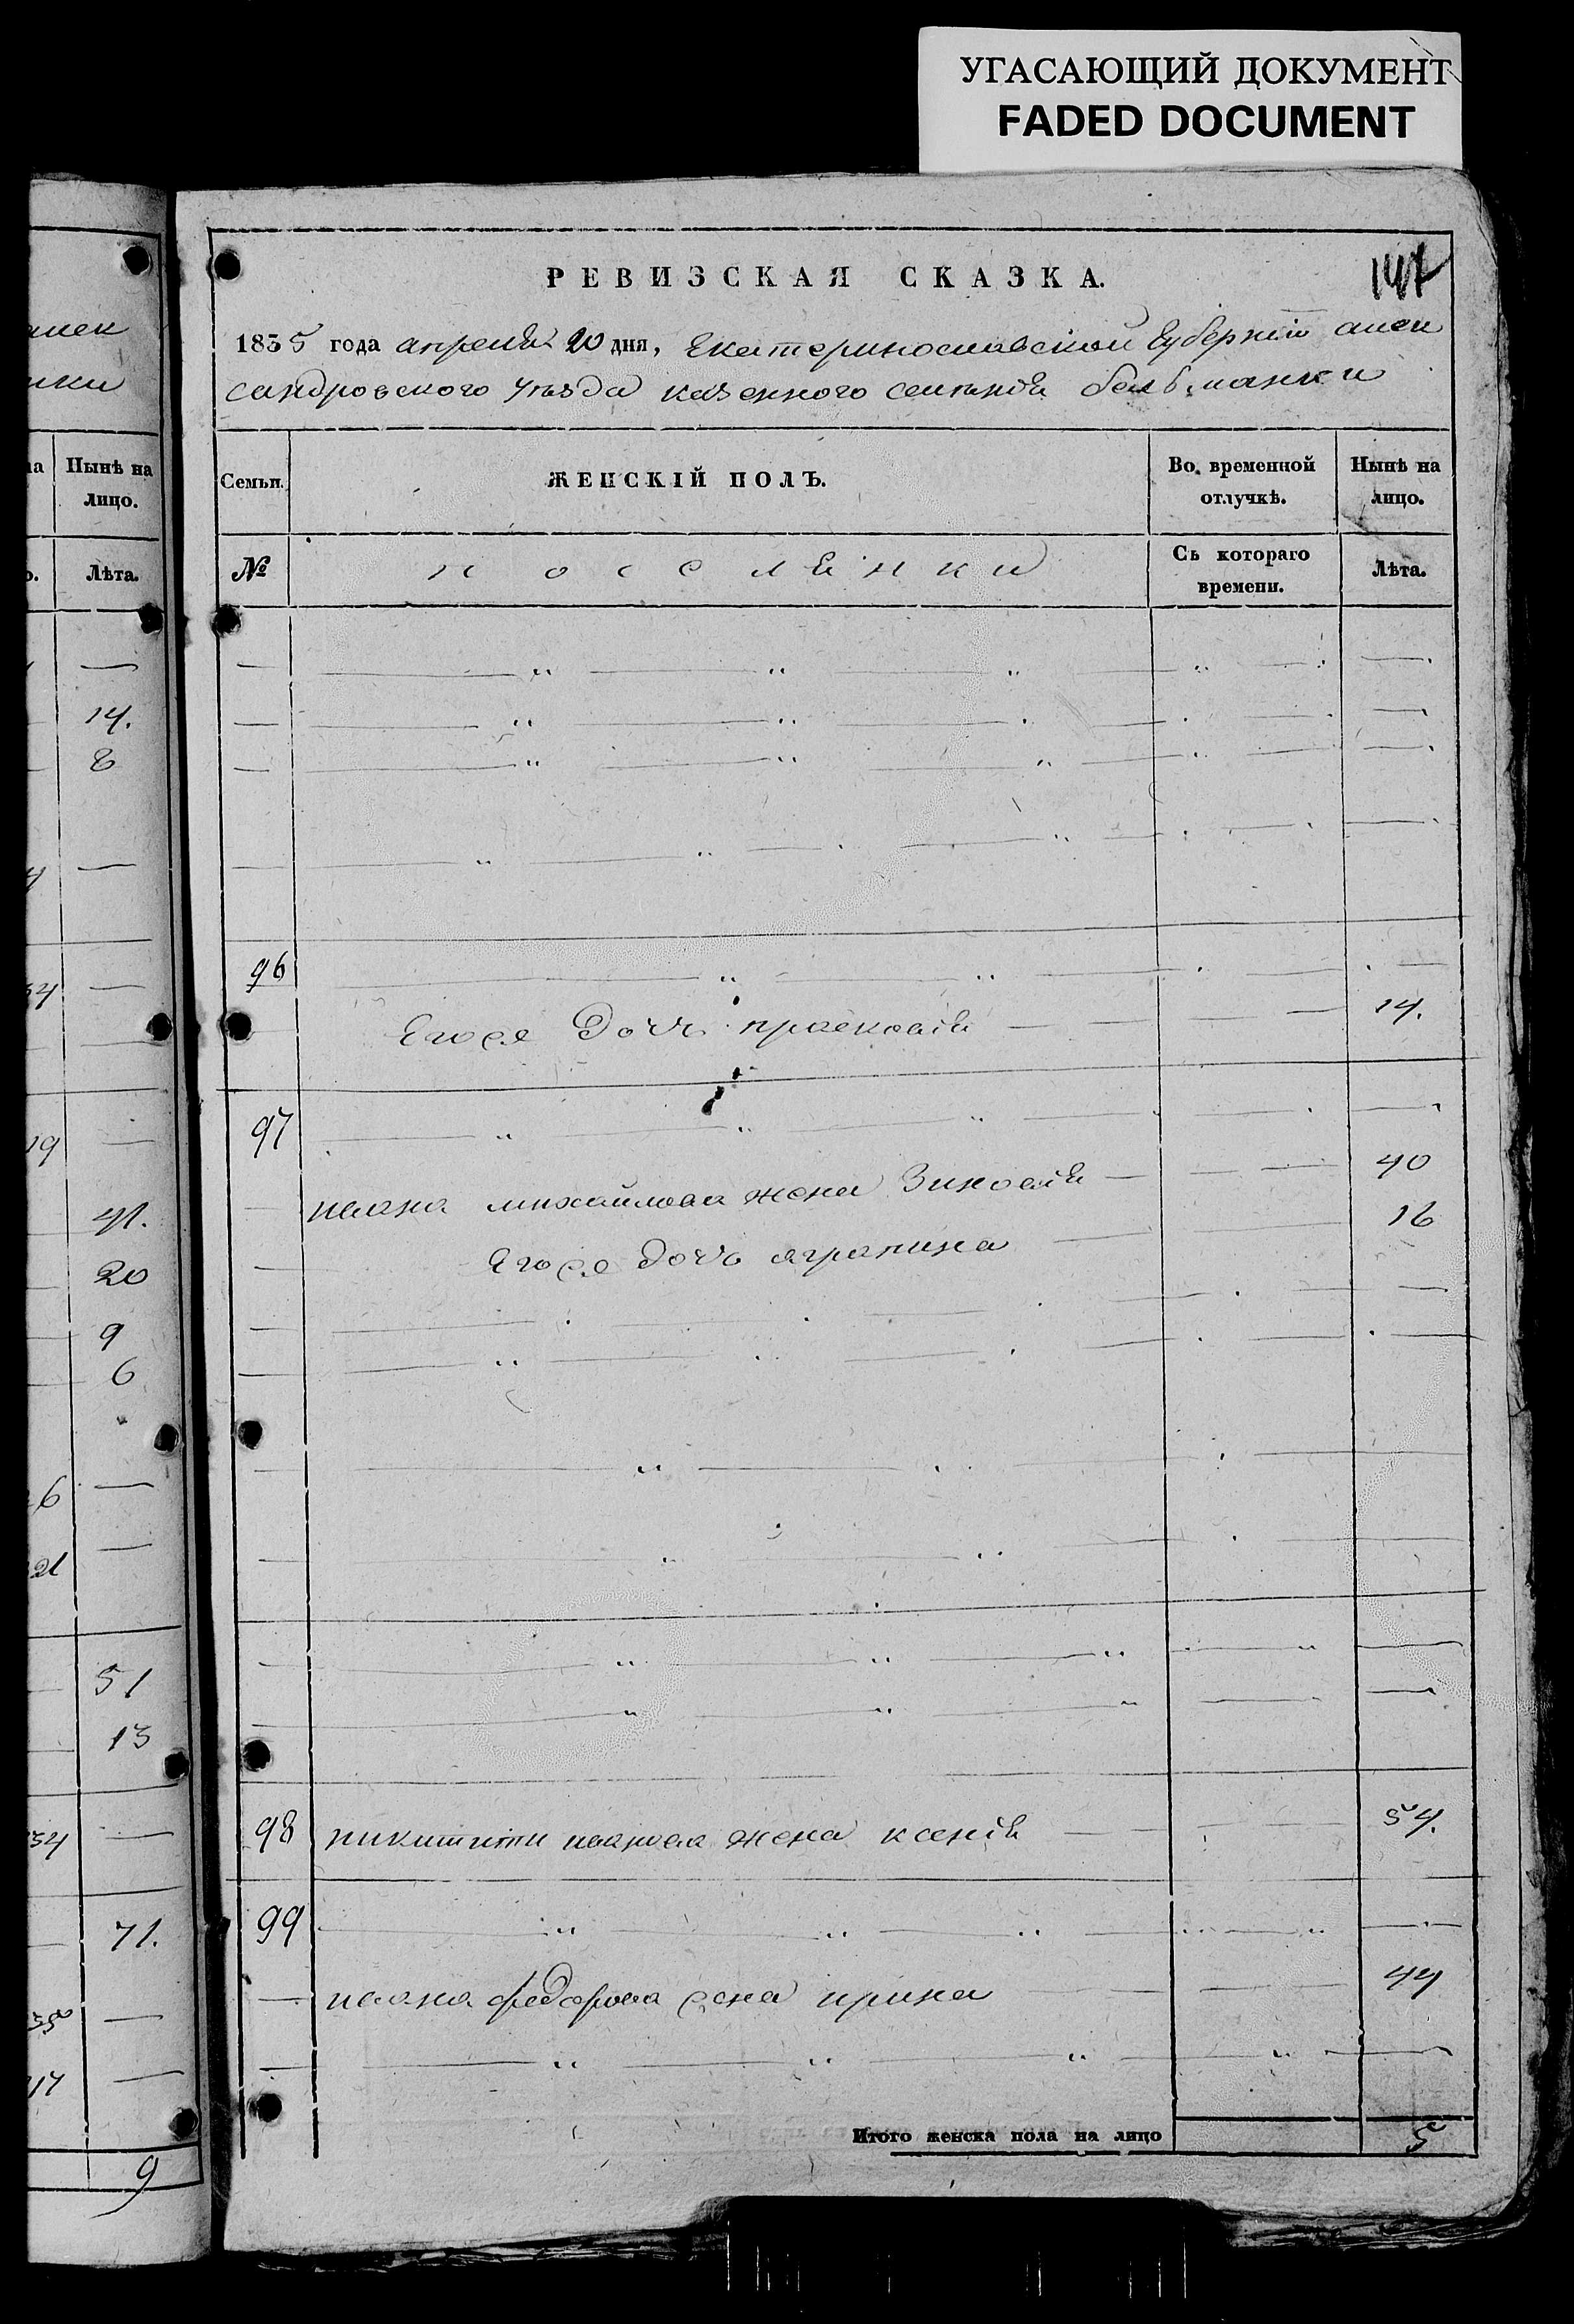 УГАСАЮЩИЙ ДОКУМЕНТ
FADED DOCUMENT
147
РЕВИЗСКАЯ СКАЗКА.
1835 года апреля 20 дня, Екатеринославской Губернии алек
сандровского уезда казенного селения бельманки
Семьи.
ЖЕНСКІЙ ПОЛЪ.
Во временной отлучкѣ.
Нынѣ на лицо.
№
поселянки
Съ котораго времени.
Лѣта.
96
Его ее дочь прасковия 14.
97
ивана михайлова жена Зиновия 40
Его ее дочь аграпина 16
98 никитини ивана жена ксения 54.
99
ивана федорова жена ирина 44
Итого женска пола на лицо 5
алек
нки
Нынѣ на
лицо.
Лѣта.
14.
8
34
19
41.
20
9
6
6
21
51
13
34
71.
35
17
9